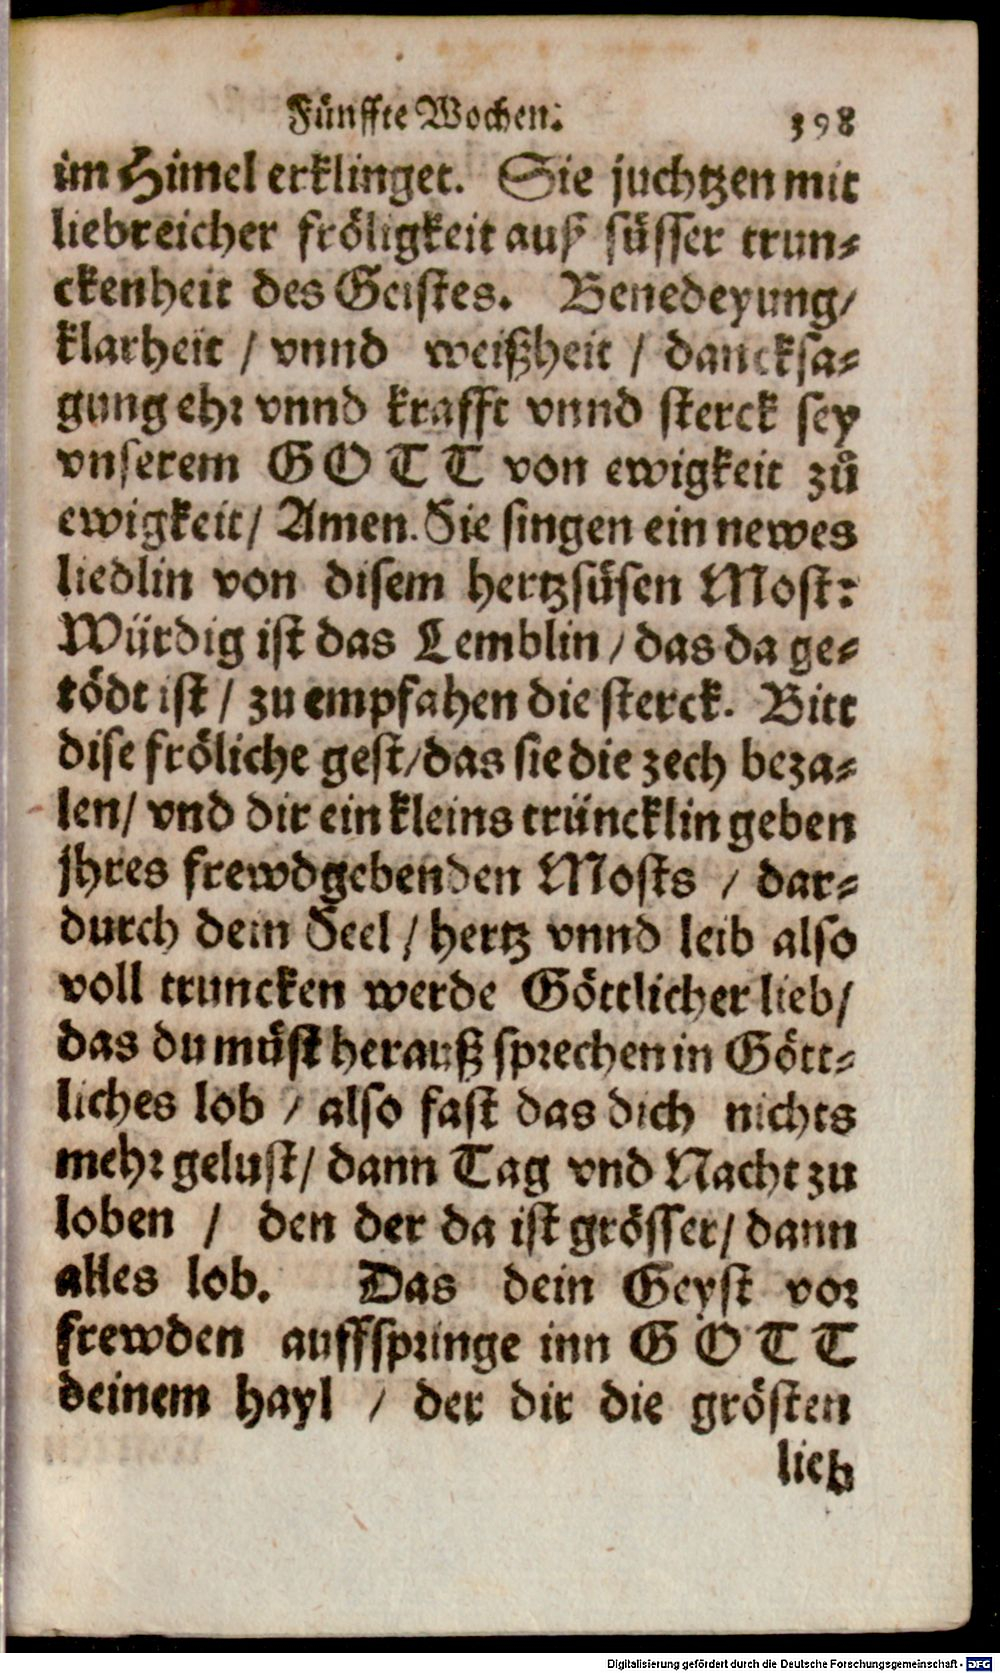 Fünffte Wochen. 398
im Himel erklinget. Sie juchtzen mit
liebreicher fröligkeit auß süsser trun-
ckenheit des Geistes. Benedeyung/
klarheit / vnnd weißheit / dancksa-
gung ehr vnnd krafft vnnd sterck sey
vnserem GOTT von ewigkeit zů
ewigkeit/ Amen. Sie singen ein newes
liedlin von disem hertzsüsen Most:
Würdig ist das Lemblin / das da ge-
tödt ist / zu empfahen die sterck. Bitt
dise fröliche gest/das sie die zech beza-
len/ vnd dir ein kleins trüncklin geben
jhres frewdgebenden Mosts / dar-
durch dein Seel / hertz vnnd leib also
voll truncken werde Göttlicher lieb/
das du müst herauß sprechen in Gött-
liches lob / also fast das dich nichts
mehr gelust/ dann Tag vnd Nacht zu
loben / den der da ist grösser/ dann
alles lob. Das dein Geyst vor
frewden auffspringe inn GOTT
deinem hayl / der dir die grösten
lieb
Digitalisierung gefördert durch die Deutsche Forschungsgemeinschaft - DFG